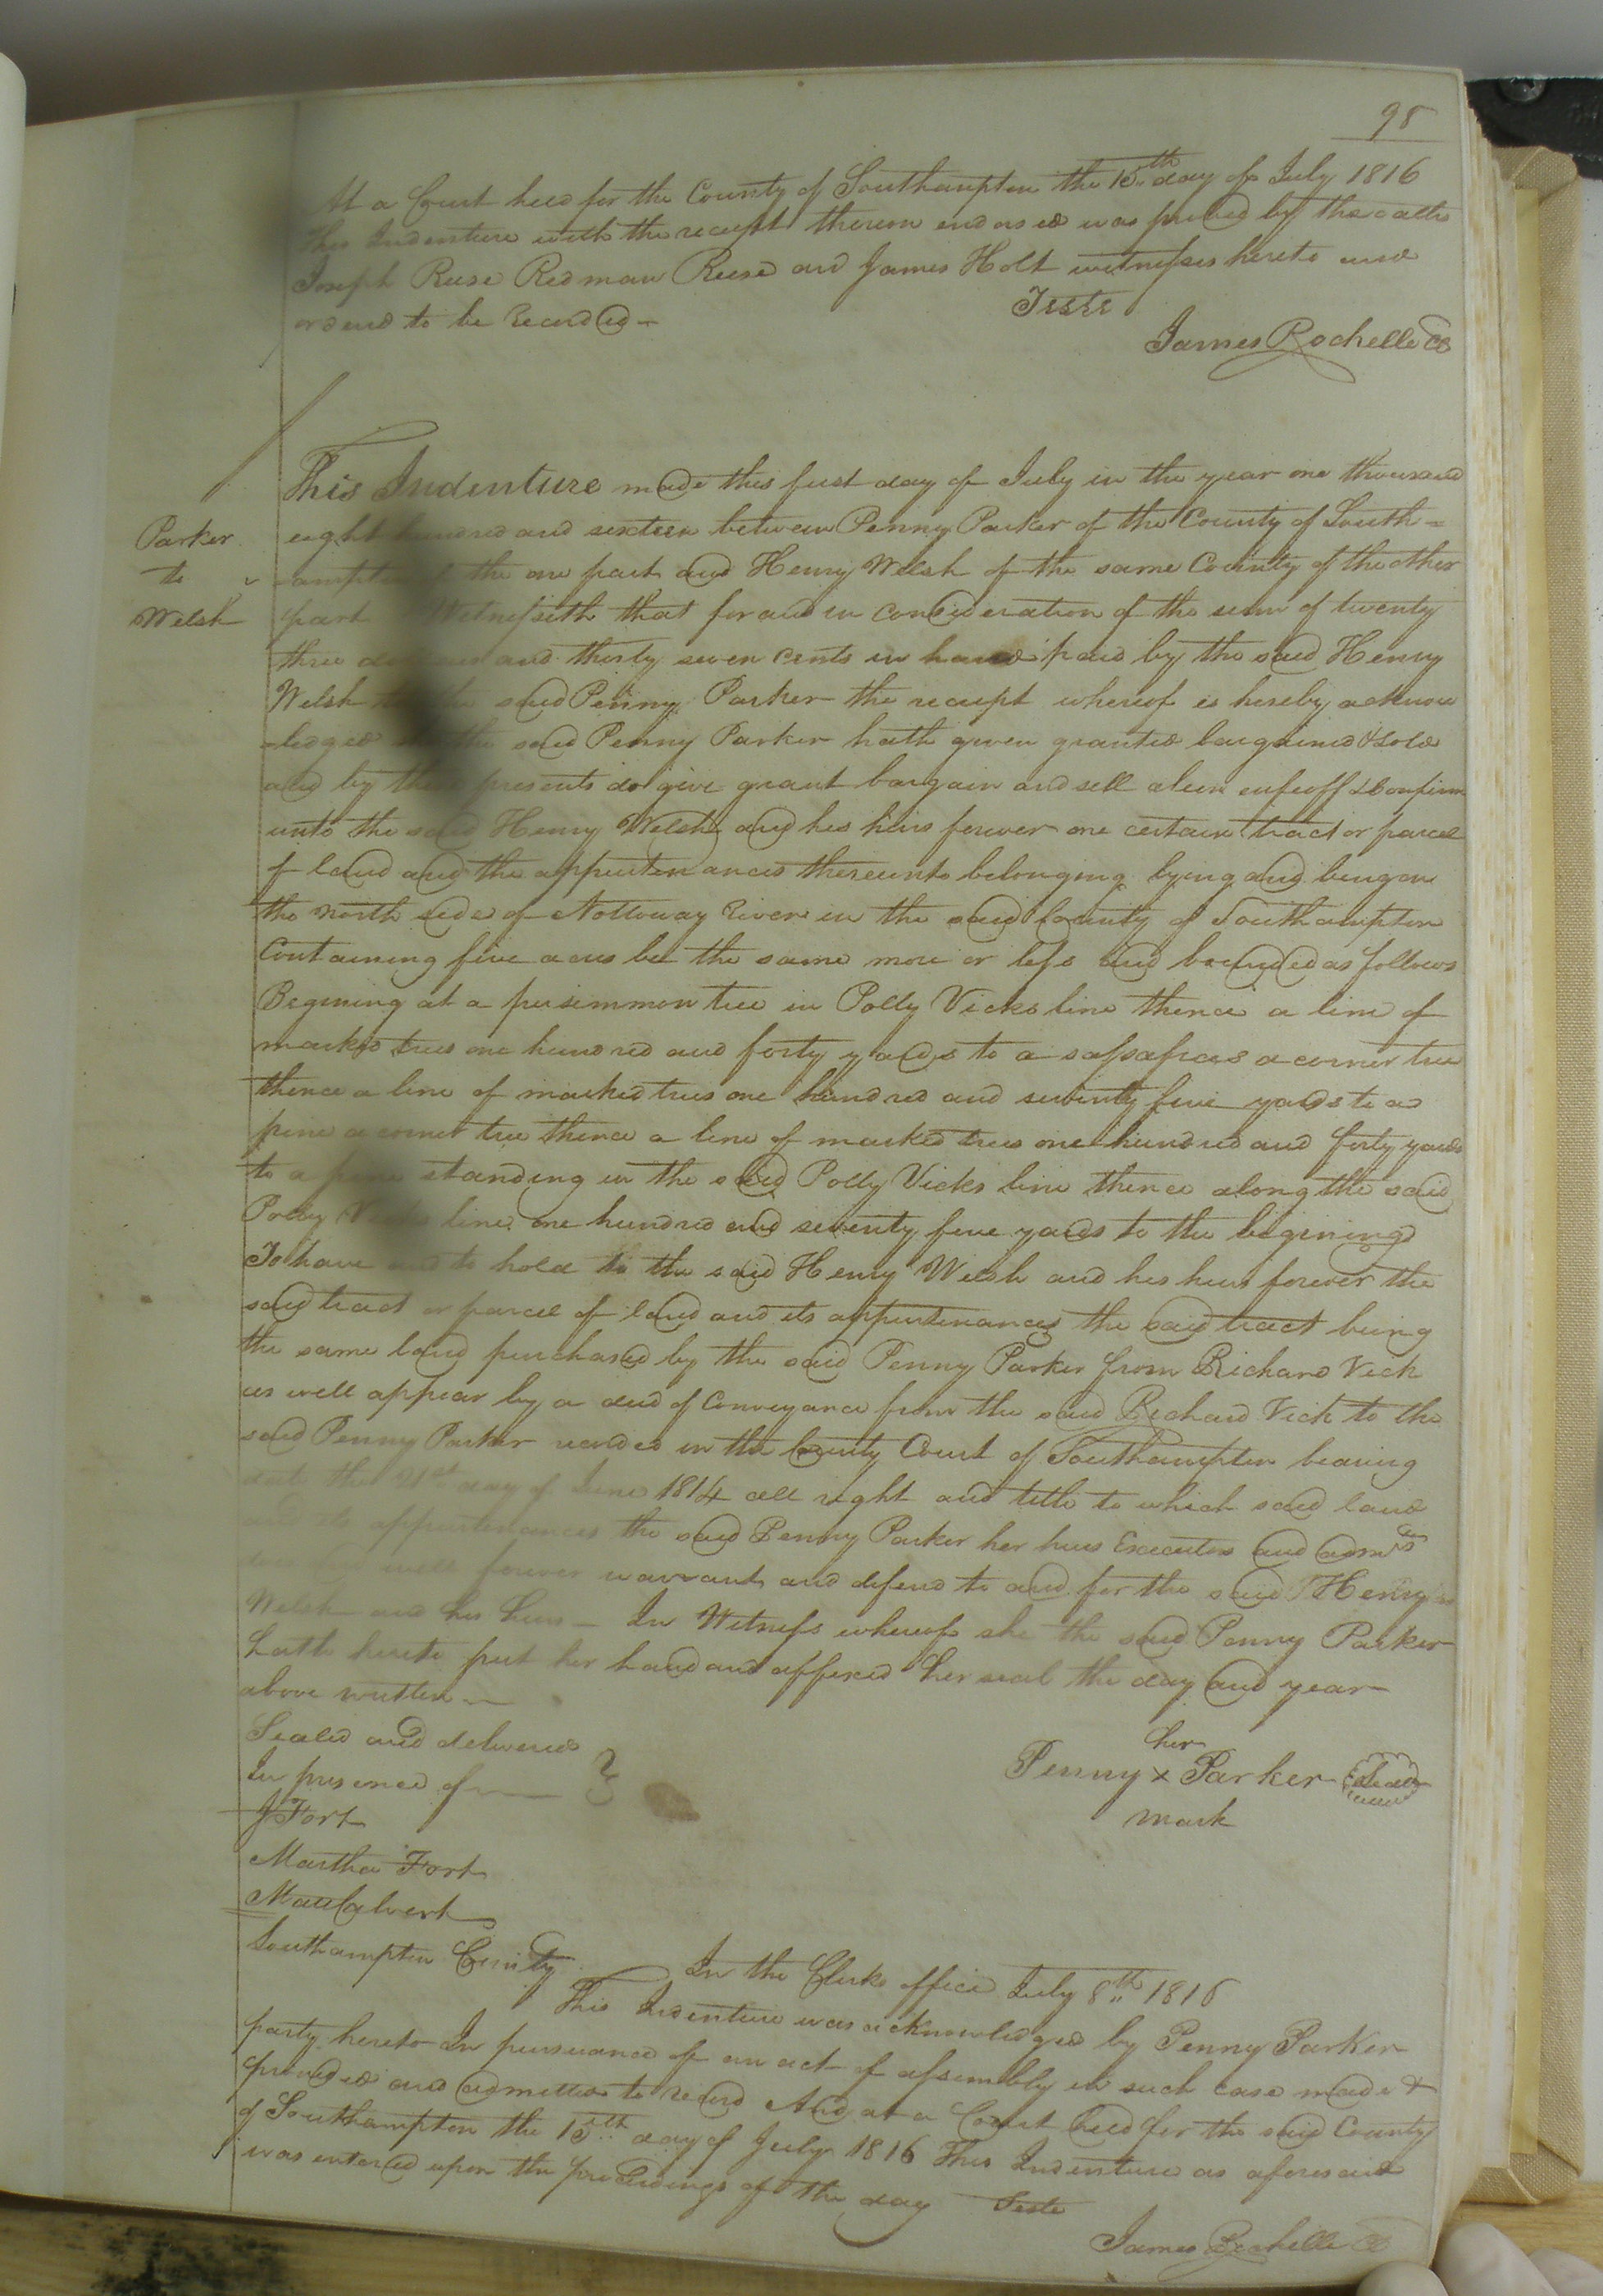 98
At a Court held for the County of Southampton the 15th day of July 1816
This Indenture with the receipt thereon endorsed was proved by the oaths
Joseph Reese Redman Reese and James Holt witnesses hereto and
ordered to be Recorded –
Teste
James Rochelle CC
This Indenture made this first day of July in the year one thousand
Parker
to
Welsh
eight hundred and sixteen between Penny Parker of the County of South=
-ampton of the one part and Henry Welsh of the same County of the other
part Witnesseth that for and in Consideration of the sum of twenty
three dollars and thirty seven Cents in hand paid by the said Henry
Welsh to the said Penny Parker the receipt whereof is hereby acknow
-ledged the said Penny Parker hath given granted bargained & sold
and by these presents do give grant bargain and sell alien enfeoff & confirm
unto the said Henry Welsh and his heirs forever one certain tract or parcel
of land and the appurtenances thereunto belonging lying and being on
the north side of Nottoway River in the said County of Southampton
Containing five acres be the same more or less and bounded as follows
Begining at a persimmon tree in Polly Vicks line thence a line of
marked trees one hundred and forty yards to a sassafras a corner tree
thence a line of marked trees one hundred and seventy five yards to a
pine a corner tree thence a line of marked trees one hundred and forty yards
to a pine standing in the said Polly Vicks line thence along the said
Polly Vicks line one hundred and seventy five yards to the begining
To have and to hold to the said Henry Welsh and his heirs forever the
said tract or parcel of land and its appurtenances the said tract being
the same land purchased by the said Penny Parker from Richard Vick
as well appear by a deed of Conveyance from the said Richard Vick to the
said Penny Parker recorded in the County Court of Southampton bearing
date the 21st day of June 1814 all right and title to which said land
and its appurtenances the said Penny Parker her heirs Executors and admrs
will forever warrant and defend to and for the said Henry
Welsh and his heirs – In Witness whereof she the said Penny Parker
hath hereto put her hand and affixed her seal the day and year
above written
Sealed and delivered
In presence of
her
Penny x Parker Seal
mark
J Fort
Martha Fort
Calvert
Southampton County
In the Clerks office July 8th 1816
This Indenture was acknowledged by Penny Parker
party hereto In pursuance of an act of assembly in such case made &
provided and admitted to record And at a Court held for the said County
of Southampton the 15th day of July 1816 This Indenture as aforesaid
was entered upon the proceedings of the day Teste
James Rochelle CC